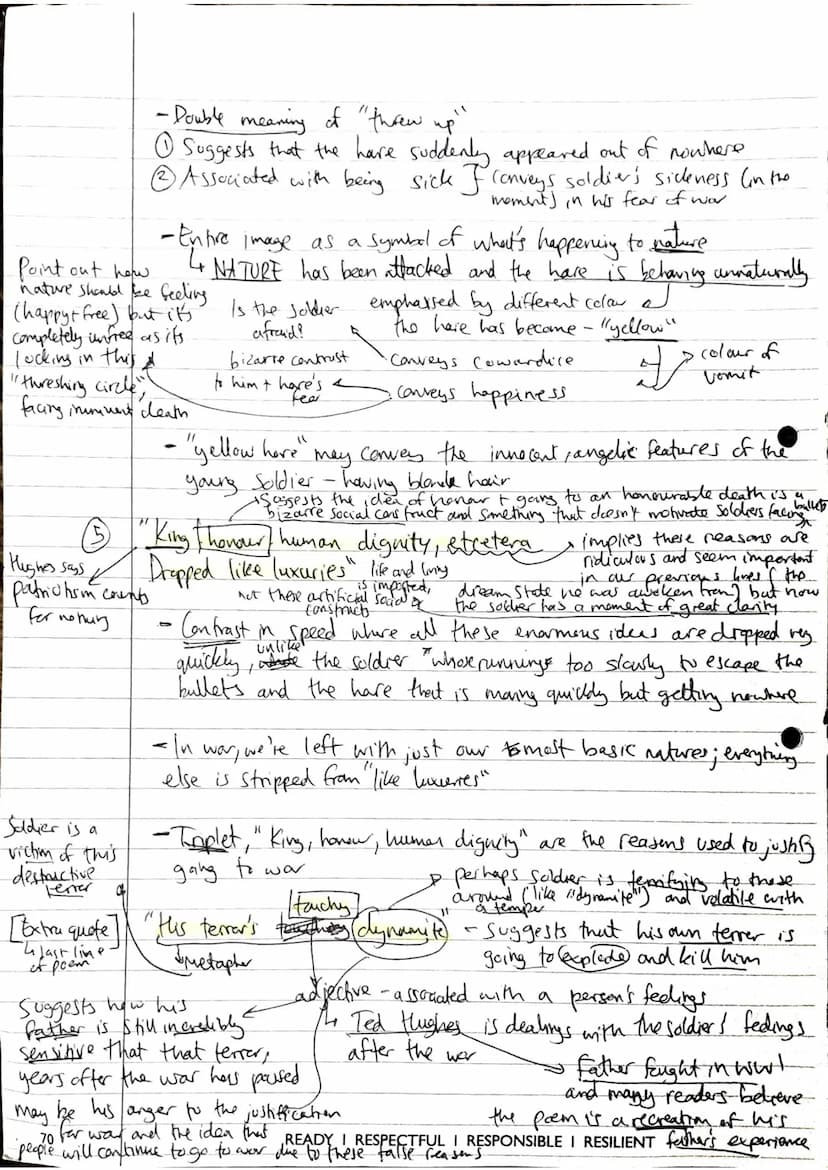 - Double meaning of "threw up"
① Suggests that the hare suddenly appeared out of nowhere
② Associated with being sick } conveys soldier's sickness (in the
moment) in his fear of war
- Entire image as a symbol of what's happening to nature
↳ NATURE has been attacked and the hare is behaving unnaturally
emphassed by different colour
the hare has become - "yellow"
→ colour of
vomit
conveys cowardice
conveys happiness
Is the soldier
afraid?
bizarre contrast
to him + hare's
fear
Point out how
nature should be feeling
(happy + free) but it's
completely unfree as its
locking in this
"threshing circle",
facing imminent death
- "yellow hare" may convey the innocent, angelic features of the
young soldier - having blonde hair
Suggests the idea of honour + going to an honourable death is a
bizarre social construct and something that doesn't motivate soldiers facing bullets
⑤ "King honour human dignity, etcetera
Dropped like luxuries"
implies these reasons are
ridiculous and seem important
in our previous lives (the
dream state he was awoken from) but now
the soldier has a moment of great clarity
life and living
is imported,
not these artificial social
constructs
Hughes says
patriotism counts
for nothing
- Contrast in speed where all these enormous ideas are dropped very
quickly, unlike the soldier whose running too slowly to escape the
bullets and the hare that is moving quickly but getting nowhere
- In war, we're left with just our most basic natures; everything
else is stripped from "like luxuries"
- Triplet, "King, honour, human dignity" are the reasons used to justify
going to war
Soldier is a
victim of this
destructive
terror
perhaps soldier is terrifying to those
around (like "dynamite") and volatile with
a temper
[Extra quote]
↳ last line
of poem
"His terror's touchy dynamite"
↓ Metaphor
- Suggests that his own terror is
going to explode and kill him
adjective - associated with a person's feelings
↳ Ted Hughes is dealings with the soldiers' feelings
after the war
Father fought in WW1
and many readers believe
the poem is a recreation of his
father's experience
Suggests how his
father is still incredibly
sensitive that that terror,
years after the war has passed
may be his anger to the justification
for war and the idea that
people will continue to go to war due to these false reasons
70
READY | RESPECTFUL | RESPONSIBLE | RESILIENT